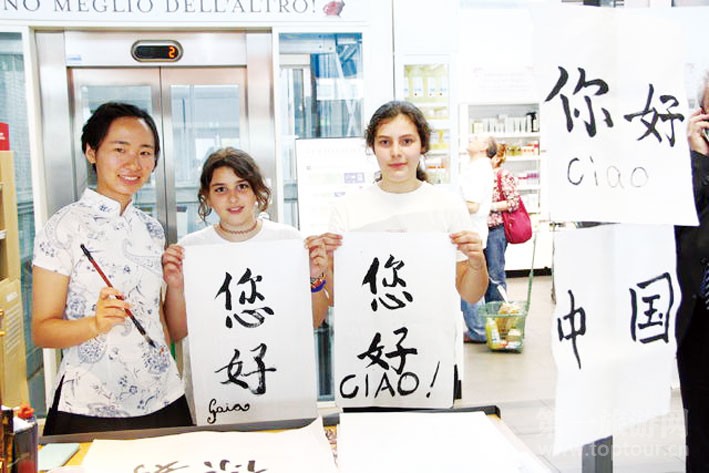 NO MEGLIO DELL'ALTRO!
2
您
好
Gaia
您
好
CIAO!
你好
ciao
中国
www.toptour.cn